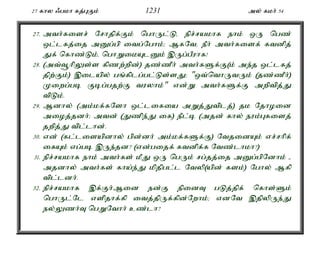 27 கால ஃபமா கத்புகும் 1231 அல் கமர் 54
27. அவர்களைச் சோதிக்கும் பொருட்டு, நிச்சயமாக நாம் ஒரு பெண்
ஒட்டகத்தை அனுப்பி வைப்போம்; ஆகவே, நீர் அவர்களைக் கவனித்
துக் கொண்டும், பொறுமையுடனும் இருப்பீராக!
28. (அவ்வூரிலுள்ள கிணற்றின்) தண்ணீர் அவர்களுக்கு(ம் அந்த ஒட்டகத்
திற்கும்) இடையில் பங்கிடப்பட்டுள்ளது; "ஒவ்வொருவரும் (தண்ணீர்)
முறைப்படி குடிப்பதற்கு வரலாம்" என்று அவர்களுக்கு அறிவித்து
விடும்.
29. ஆனால் (அம்மக்களோ ஒட்டகையை அறுத்துவிடத்) தம் தோழனை
அழைத்தனர்; அவன் (துணிந்து கை) நீட்டி (அதன் கால் நரம்புகளைத்
தறித்து விட்டான்.
30. என் (கட்டளையினால் பின்னர் அம்மக்களுக்கு) வேதனையும் எச்சரிக்
கையும் எப்படி இருந்தன? (என்பதைக் கவனிக்க வேண்டாமா?)
31. நிச்சயமாக நாம் அவர்கள் மீது ஒரு பெரும் சப்தத்தை அனுப்பினோம் ,
அதனால் அவர்கள் காய்ந்து மிதிபட்ட வேலி(யின் களம்) போல் ஆகி
விட்டனர்.
32. நிச்சயமாக இக்குர்ஆனை நன்கு நினைவு படுத்திக் கொள்ளும்
பொருட்டே எளிதாக்கி வைத்திருக்கின்றோம்; எனவே இதிலிருந்து
நல்லுணர்வு பெறுவோர் உண்டா?